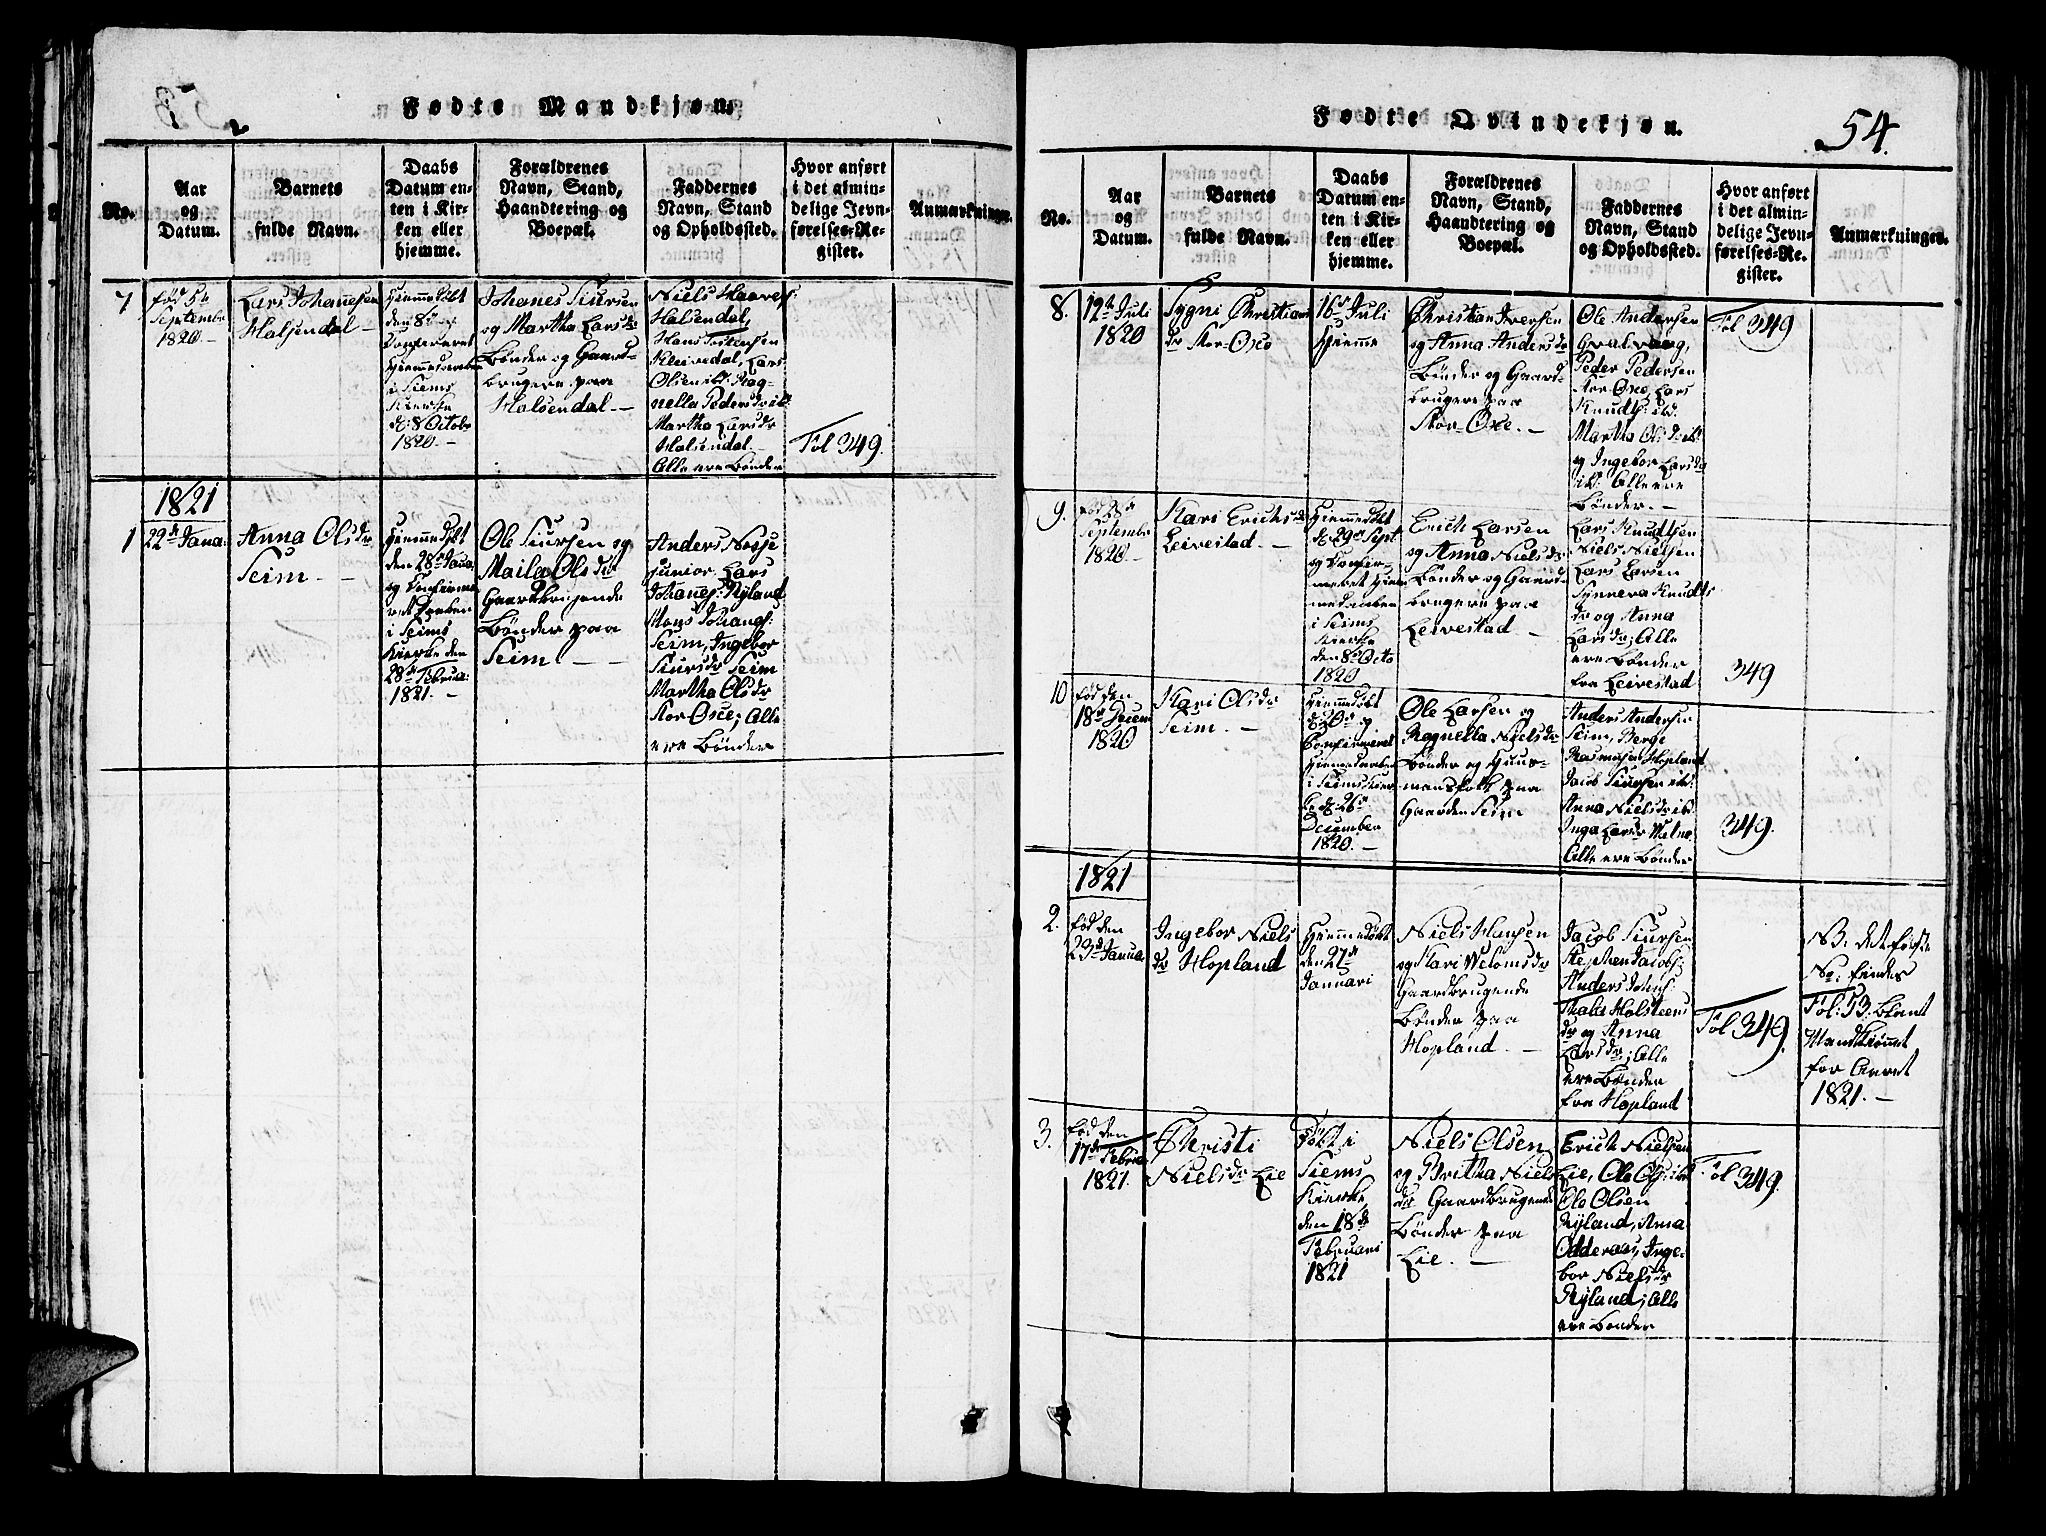 Fødte Mandkjøn.
No.
Aar
og
Datum.
Barnets
fulde Navn.
Daabs
Datum en-
ten i Kir-
ken eller
hjemme.
Forældrenes
Navn, Stand,
Haandtering og
Boepæl.
Faddernes
Navn, Stand
og Opholdssted.
Hvor anført
i det almin-
delige Jevn-
førelses-Re-
gister.
Anmærkninger.
7
fød 5te
Septembr
1820.-
Lars Johanesen
Halsendal
Hiemmedøbt
den 8de
Confirmeret
Hiemmedaaben
i Seims
Kierke
d: 8 Octobr
1820.-
Johanes Siursen
og Martha Larsdr
Bønder og Gaard-
brugere paa
Halsendal.-
Niels Haaves:
Halsendal,
Hans Tostensen
Kleivedal, Lars
Olsen ibd: Rag-
nella Pedersdr ibd:
Martha Larsdr
Halsendal.
Alle ere Bønder
Fol 349.
1821
1
22de Janua.
Anna Olsdr
Seim.-
Hiemmedøbt
den 28de Janua.
og Confirme-
ret Daaben
i Seims
Kierke den
28de Februa:
1821.-
Ole Siursen og
Maila Olsdr
Gaardbrugende
Bønder paa
Seim
Anders Nesse
junior. Lars
Johanes: Ryland
Mons Johans:
Seim, Ingebor
Siursdr Seim
Martha Olsdr
Stor-Oxe; Alle
ere Bønder
Fødte Qvindekjøn.
54.
No.
Aar
og
Datum.
Barnets
fulde Navn.
Daabs
Datum en-
ten i Kir-
ken eller
hjemme.
Forældrenes
Navn, Stand,
Haandtering og
Boepæl.
Faddernes
Navn, Stand
og Opholdssted.
Hvor anført
i det almin-
delige Jevn-
førelses-Re-
gister.
Anmærkninger.
8.
12te Juli
1820
Sygni Christians
dr Stor-Oxe
16de Juli
Hiemme
Christian Iversen
og Anna Andersdr
Bønder og Gaard-
brugere paa
Stor-Oxe.-
Ole Andersen
Peder Pedersen
Stor-Oxe, Lars
Knudts: ibd.
Martha Olsdr ibd
og Ingebor Larsdr
ibd: Alle ere
Bønder.-
Fol 349
9.
fød 28de
Septembr
1820.-
Kari Erichsdr
Leivestad.-
Hiemmedøbt
d: 29de Sept
og Confir-
meret Hiem-
medaaben
i Seims
Kierke
den 8de Octo
1820
Erich Larsen
og Anna Nielsdr
Bønder og Gaard-
brugere paa
Leivestad
Lars Knudtsen
Niels Nielsen
Lars Larsen
Synneva Knudts
dr og Anna
Larsdr; Alle
ere Bønder
fra Leivestad
349
10
fød den
18de Decem
1820
Kari Olsdr
Seim.-
Hiemmedøbt
d: 20de og
Confirmeret
Hiemmedaaben
i Seims Kier-
ke d: 26de
December
1820.-
Ole Larsen og
Ragnella Nielsdr
Bønder og Huus-
mansfolk paa
Gaarden Seim
Anders Andersen
Seim, Berge
Rasmusen Hopland
Jacob Siursen ibd:
Anna Nielsdr ibd
Inga Larsdr
Alle ere Bønder
349.
1821
2.
fød den
23de Janua
Ingebor Niels
dr Hopland
Hiemmedøbt
den 27de
Januari
Niels Hansen
og Kari Welomsdr
Gaardbrugende
Bønder paa
Hopland.-
Jacob Siursen
Stephen Jacobs:
Anders Johns:
Holsteens
dr og Anna
Larsdr; Alle
ere Bønder
fra Hopland
Fol 349.
NB. det første
No: findes
Fol: 53. blant
Mandkiønnet
for Aaret
1821.-
3.
fød den
17de Februa
1821.
Christi
Nielsdr Lie
Døbt i
Siems
Kierke
den 18de
Februari
1821
Niels Olsen
og Britha Niels
dr Gaardbrugende
Bønder paa
Lie.-
Erich Nielsen
Lie, Ole Ols: ibd
Ole Olsen
Ryland, Anna
Odderaas, Inge-
bor Nielsdr
Ryland; Alle
ere Bønder
Fol 349.